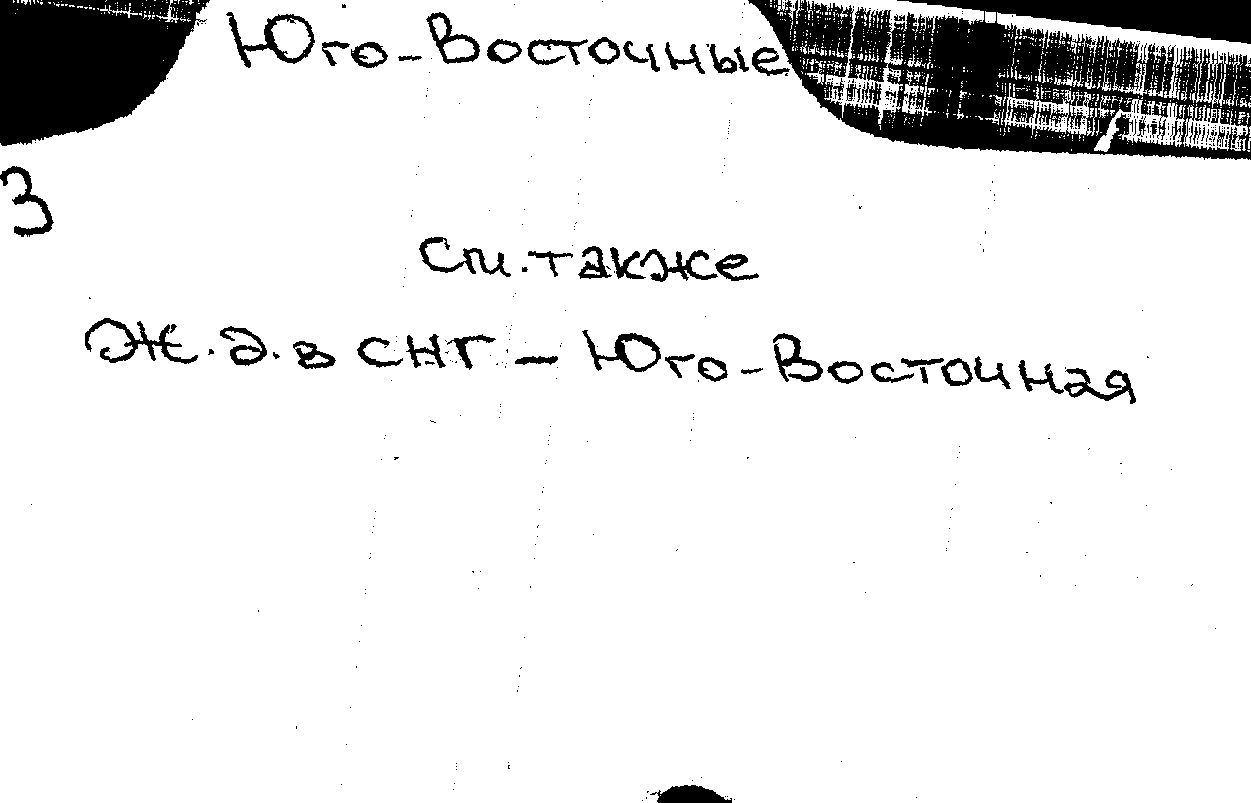 Юго-Восточные
3
См. также
Ж.д. в СНГ - Юго-Восточная